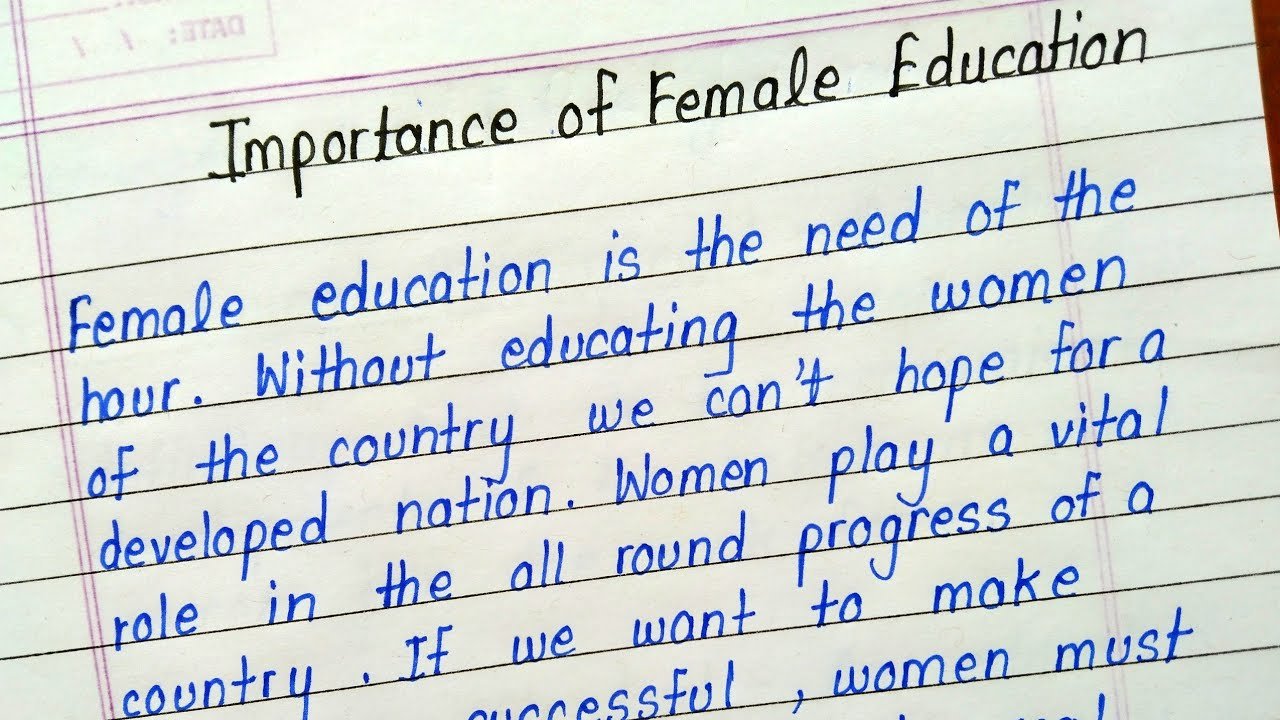 DATE:
Importance of Female Education
Female education is the need of the
hour. Without educating the women
of the country we can't hope for a
developed nation. Women play a vital
role in the all round progress of a
country. If we want to make
successful, women must